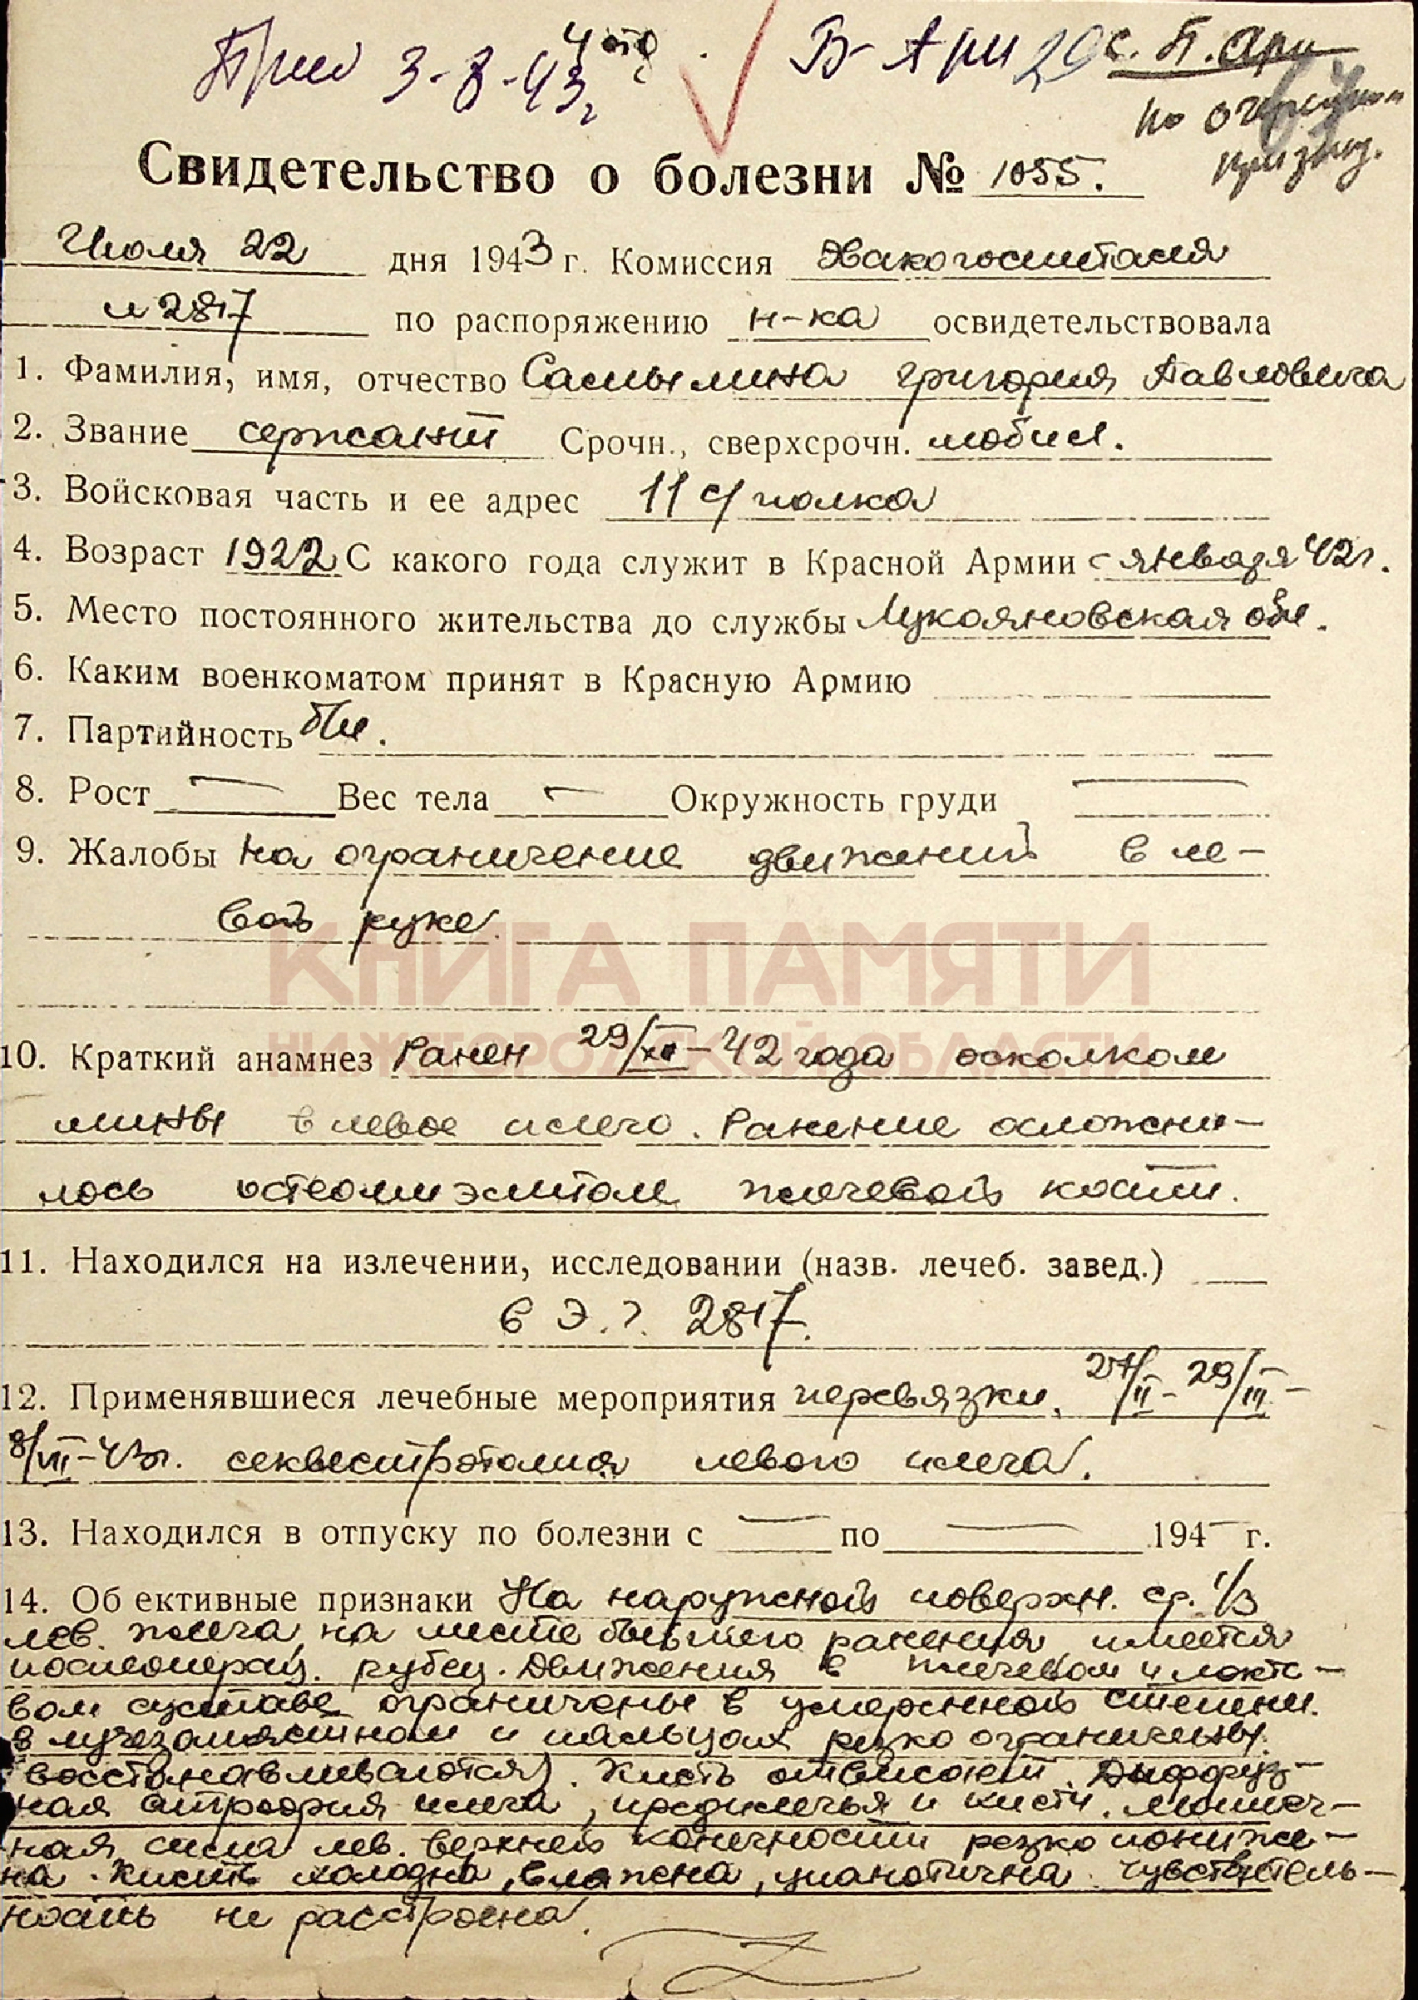 4 отд
3-8-43г
Б-Ари 29 с. Б. Ари
по
Свидетельство о болезни № 1055.
Июля 22 дня 1943 г. Комиссия Эвакогоспиталя
№ 2817 по распоряжению н-ка освидетельствовала
1. Фамилия, имя, отчество Самылина Григория Павловича
2. Звание сержант Срочн., сверхсрочн. мобил.
3. Войсковая часть и ее адрес 11 с/полка
4. Возраст 1922 С какого года служит в Красной Армии с января 42г.
5. Место постоянного жительства до службы Лукояновская обл.
6. Каким военкоматом принят в Красную Армию
7. Партийность б/п.
8. Рост — Вес тела — Окружность груди —
9. Жалобы на ограничение движений в ле-
вой руке.
КНИГА ПАМЯТИ
НИЖЕГОРОДСКОЙ ОБЛАСТИ
10. Краткий анамнез Ранен 29/XII-42 года осколком
мины в левое плечо. Ранение осложни-
лось остеомиэлитом плечевой кости.
11. Находился на излечении, исследовании (назв. лечеб. завед.)
в Э.Г. 2817.
12. Применявшиеся лечебные мероприятия перевязки, 27/II-29/III-
8/VII-43г. секвестротомия левого плеча.
13. Находился в отпуску по болезни с — по — 194- г.
14. Об ективные признаки На наружной поверхн. ср. 1/3
лев. плеча на месте бывшего ранения имеется
послеоперац. рубец. Движения в плечевом и локте-
вом суставе ограничены в умеренной степени.
в лучезапястном и пальцах резко ограничены.
восстанавливаются). Кисть отвисает. Диффуз-
ная атрофия плеча, предплечья и кисти. Мышеч-
ная сила лев. верхней конечности резко пониже-
на. Кисть холодна, влажна, цианотична. Чувствитель-
ность не расстроена.